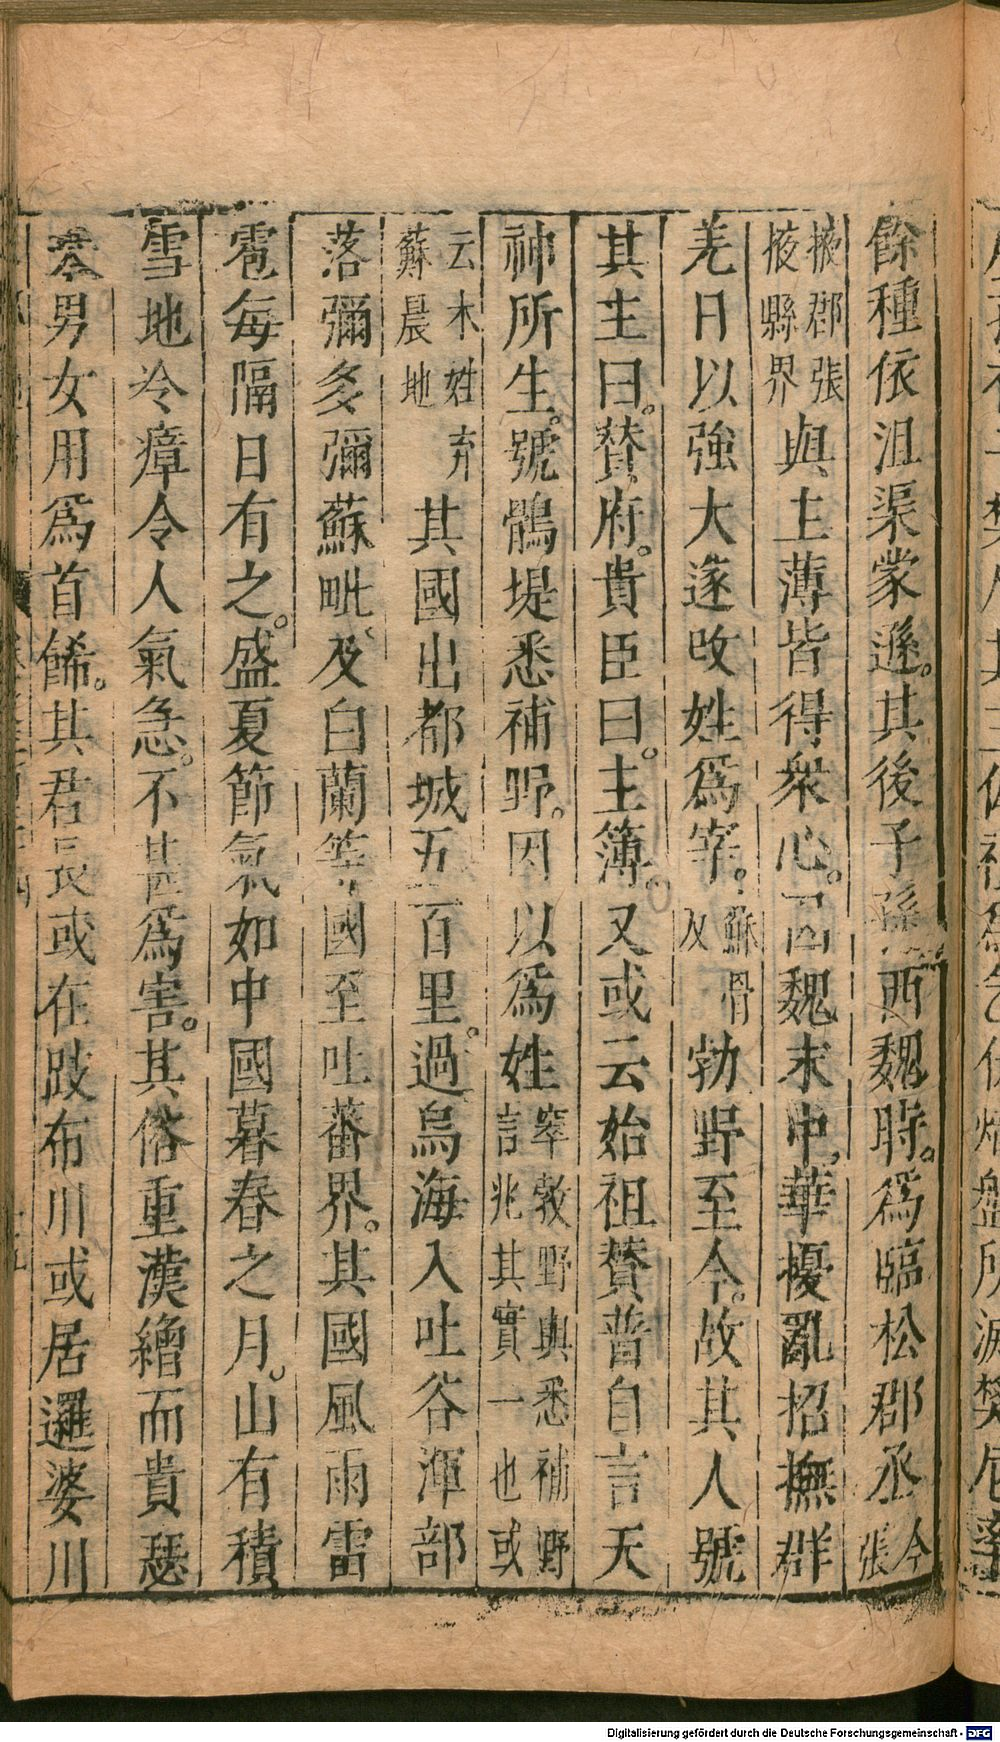 餘種依沮渠蒙遜。其後子孫西魏時。爲臨松郡丞今張
掖郡張掖縣界與主薄皆得衆心。因魏末中華擾亂招撫群
羌日以強大遂改姓爲窣。蘇骨反勃野至今。故其人號
其主曰。贊府。貴臣曰。主簿。又或云始祖贊普自言天
神所生。號鶻堤悉補野。因以爲姓窣敎野與悉補野言兆其實一也或
云木姓弃蘇晨地其國出都城五百里。過烏海入吐谷渾部
落彌多彌蘇毗及白蘭等國至吐蕃界。其國風雨雷
雹每隔日有之。盛夏節氣如中國暮春之月。山有積
雪地冷瘴令人氣急。不甚爲害。其俗重漢繒而貴瑟
瑟男女用爲首餙。其君長或在跋布川或居邏婆川
Digitalisierung gefördert durch die Deutsche Forschungsgemeinschaft - DFG